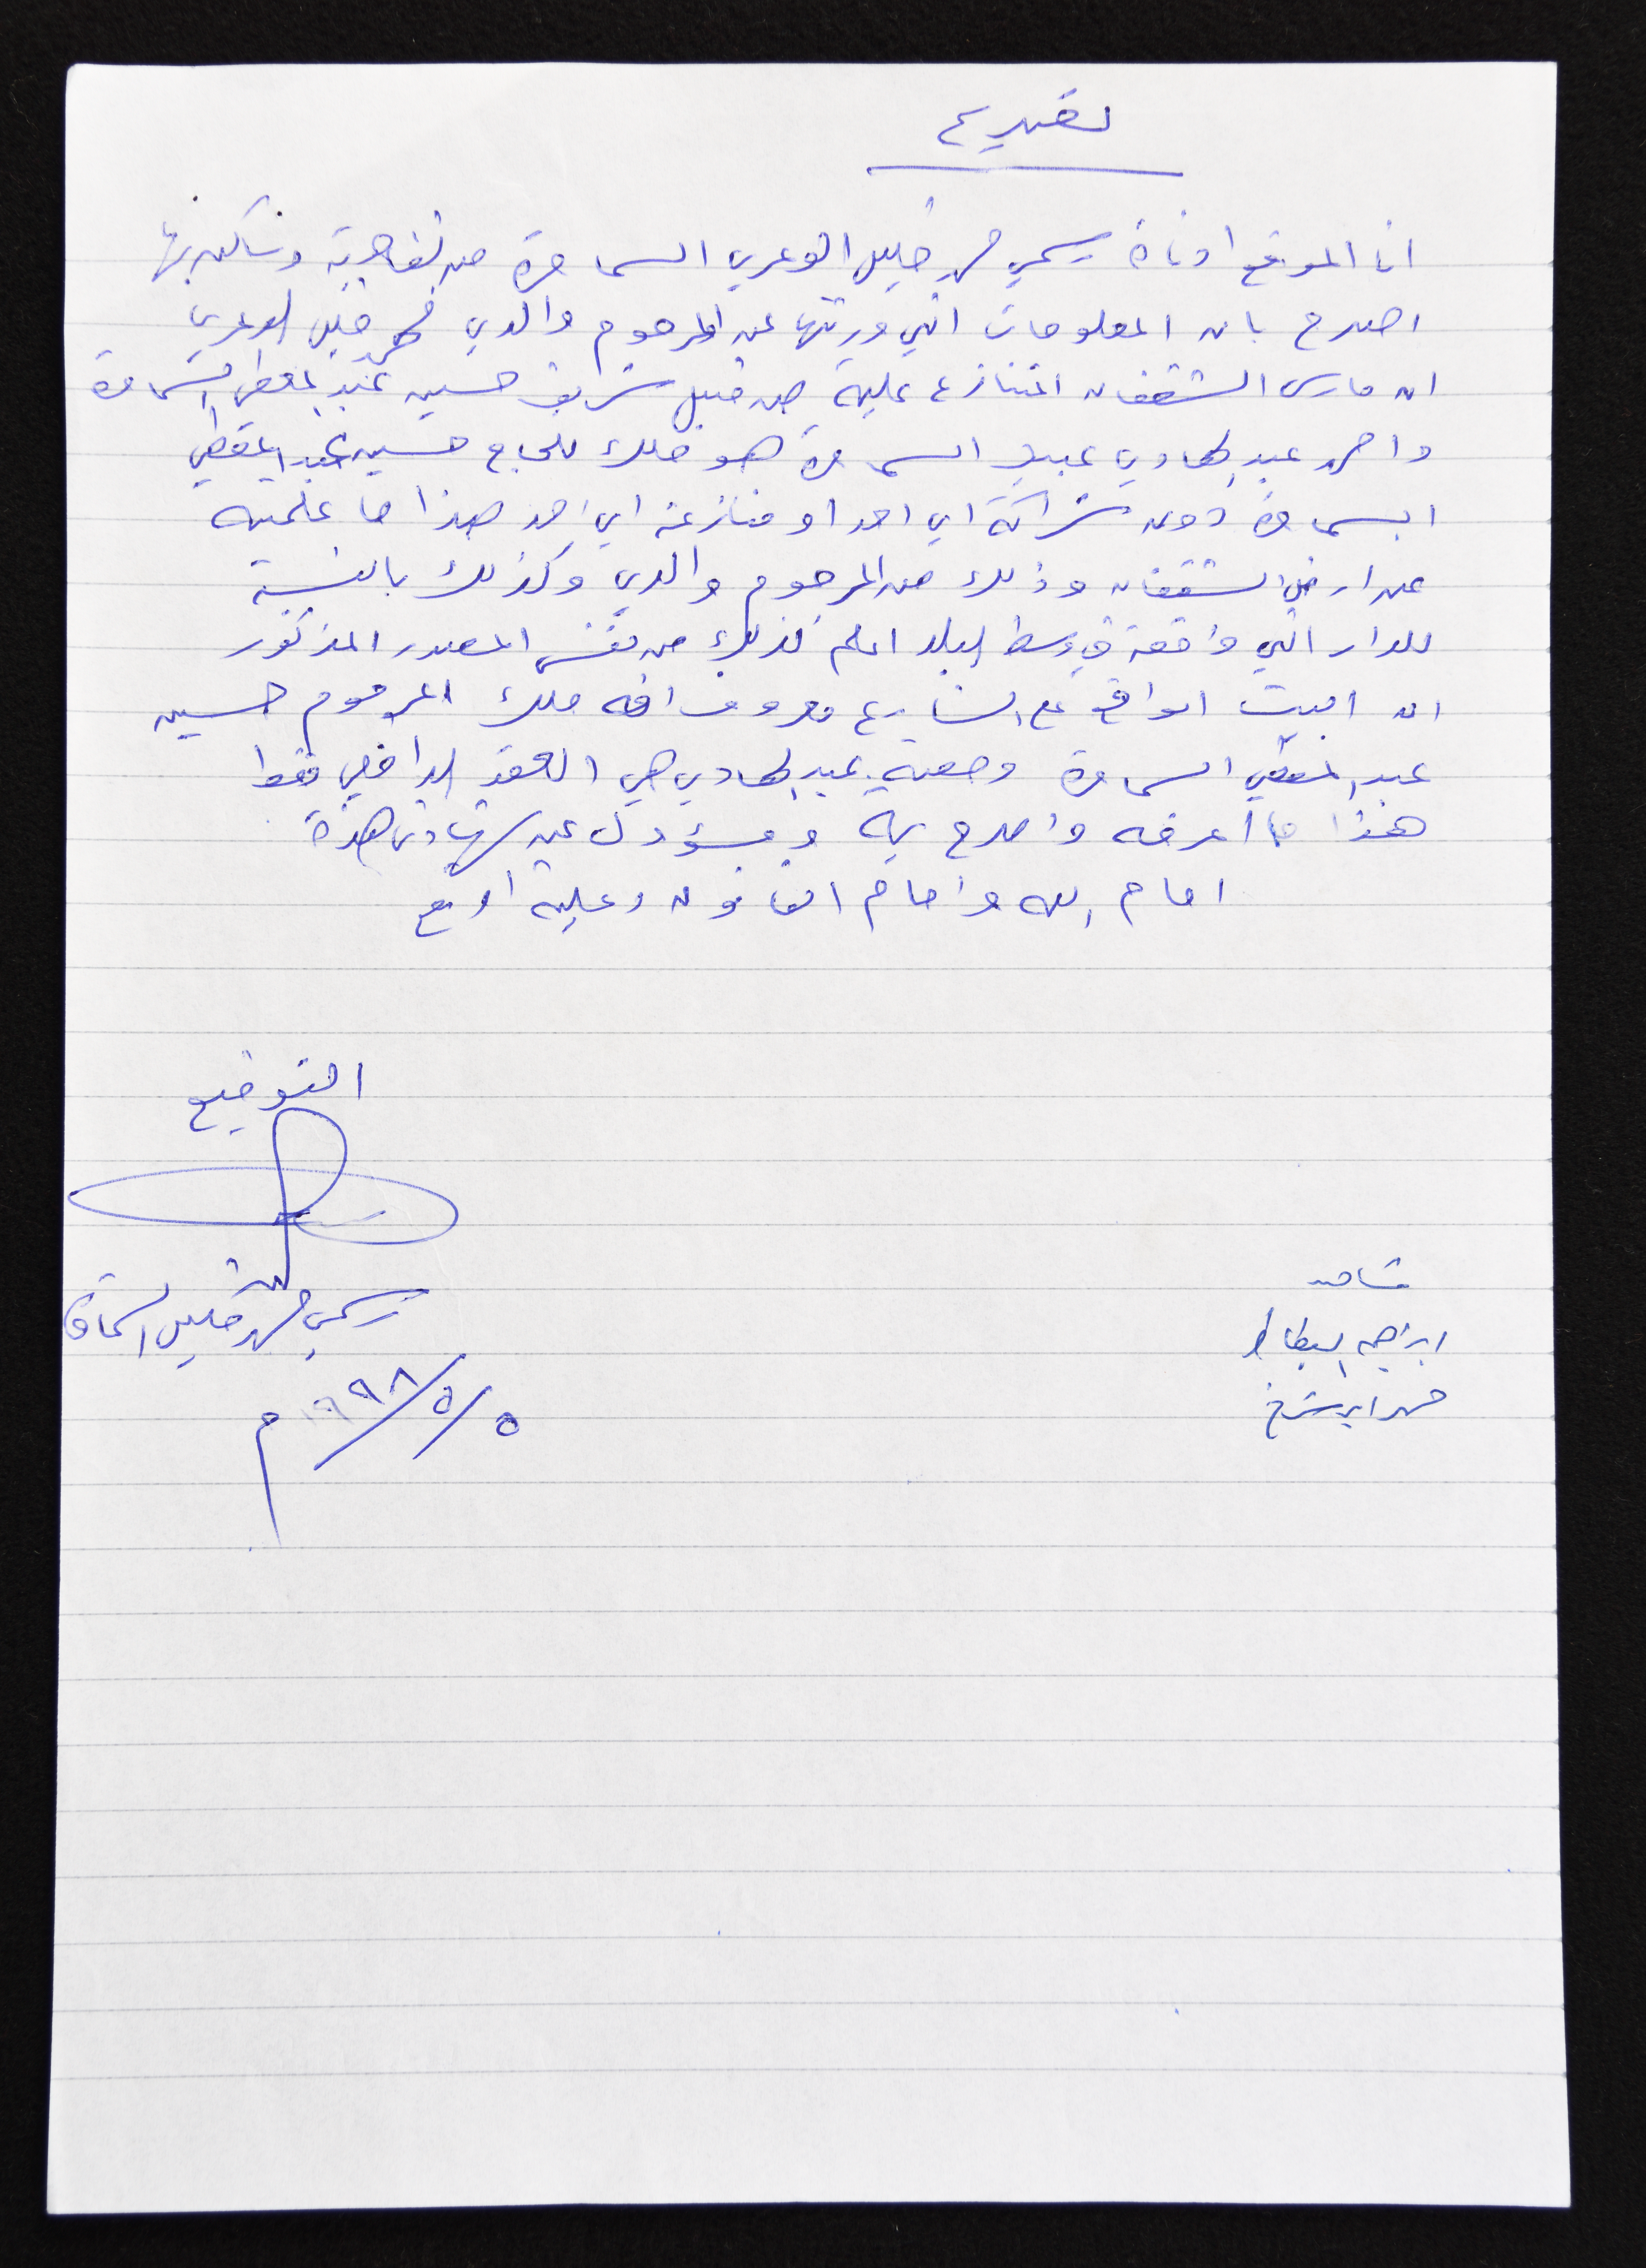 تصريح
انا الموقع ادناه رسمي محمد خليل الوعري السمامرة من الظاهرية وساكن بها
اصرح بان المعلومات التي ورثتها عن المرحوم والدي محمد خليل الوعري
ان مارس الشقفان المتنازع علية من قبل شريف حسين عبد المعطي السمامرة
واحمد عبد الهادي عبيد السمامرة هو ملك للحاج حسين عبد المعطي
السمامرة دون شراكة اي احد او منازعة اي احد هذا ما علمته
عن ارض الشقفان وذلك من المرحوم والدي وكذلك بالنسبة
للدار التي واقعة في وسط البلد اعلم كذلك من نفس المصدر المذكور
ان البيت الواقع على الشارع معروف انه ملك المرحوم حسين
عبد المعطي السمامرة وحصة عبد الهادي هي العقد الداخلي فقط
هذا ما اعرفه واصرح به ومسؤول عن شهادتي هذة
امام الله وامام القانون وعلية اوقع
التوقيع
رسمي محمد خليل السمامرة
٥/٥/١٩٩٨م
شاهد
ابراهيم البطاط
محمد ابو شرخ